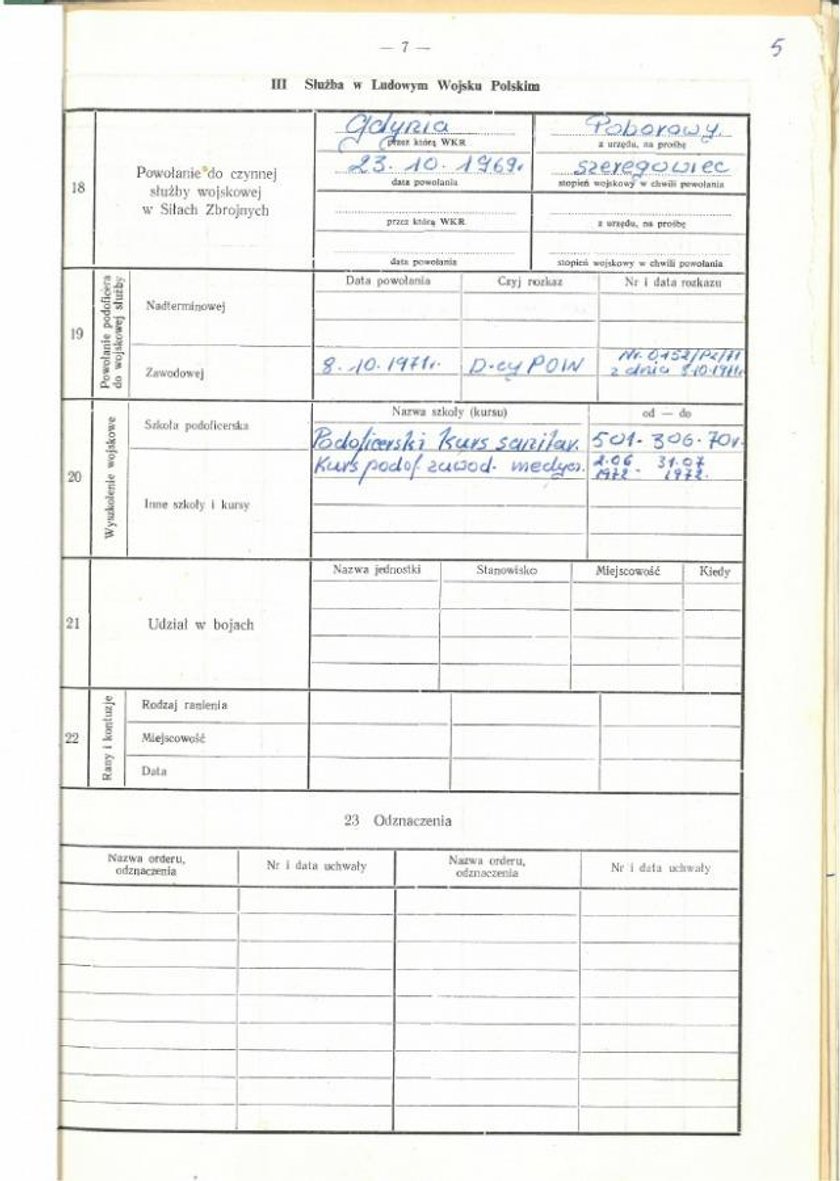 — 7 —
5
III Służba w Ludowym Wojsku Polskim
18
Powołanie do czynnej
służby wojskowej
w Siłach Zbrojnych
Gdynia
przez którą WKR
23. 10. 1969.
data powołania
Poborowy.
z urzędu, na prośbę
szeregowiec
stopień wojskowy w chwili powołania
przez którą WKR
data powołania
z urzędu, na prośbę
stopień wojskowy w chwili powołania
19
Powołanie podoficera
do wojskowej służby
Data powołania
Czyj rozkaz
Nr i data rozkazu
Nadterminowej
Zawodowej
8. 10. 1971r.
D-cy POW
Nr. 0152/Pz/71
z dnia 8.10.1971r.
20
Wyszkolenie wojskowe
Nazwa szkoły (kursu)
od — do
Szkoła podoficerska
Podoficerski Kurs sanitar.
501. 306. 70r.
Kurs podof. zawod. medycz.
2.06 31.07
1972 - 1972.
Inne szkoły i kursy
21
Udział w bojach
Nazwa jednostki
Stanowisko
Miejscowość
Kiedy
22
Rany i kontuzje
Rodzaj ranienia
Miejscowość
Data
23 Odznaczenia
Nazwa orderu,
odznaczenia
Nr i data uchwały
Nazwa orderu,
odznaczenia
Nr i data uchwały